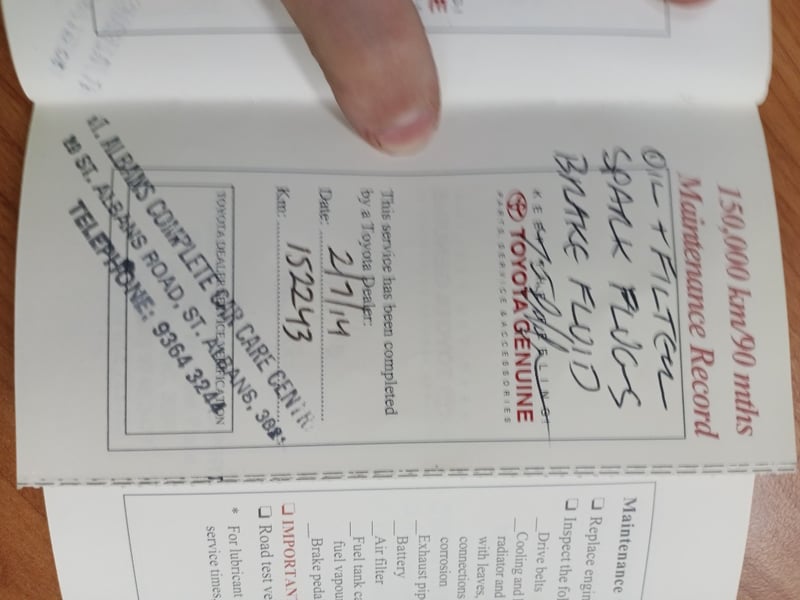 150,000 km/90 mths
Maintenance Record
OIL + FILTER
SPARK PLUGS
BRAKE FLUID
TOYOTA GENUINE
PARTS SERVICE & ACCESSORIES
This service has been completed
by a Toyota Dealer:
Date: 2/7/14
Km: 152243
TOYOTA DEALER SERVICE VERIFICATION
ST. ALBANS COMPLETE CAR CARE CENTRE
ST. ALBANS ROAD, ST. ALBANS,
TELEPHONE: 9364 324
Maintenance
❑ Replace engin
❑ Inspect the fol
__Drive belts
__Cooling and
radiator and
with leaves,
connections
corrosion
__Exhaust pip
__Battery
__Air filter
__Fuel tank ca
fuel vapou
__Brake peda
❑ IMPORTAN
❑ Road test ve
* For lubricant
service times